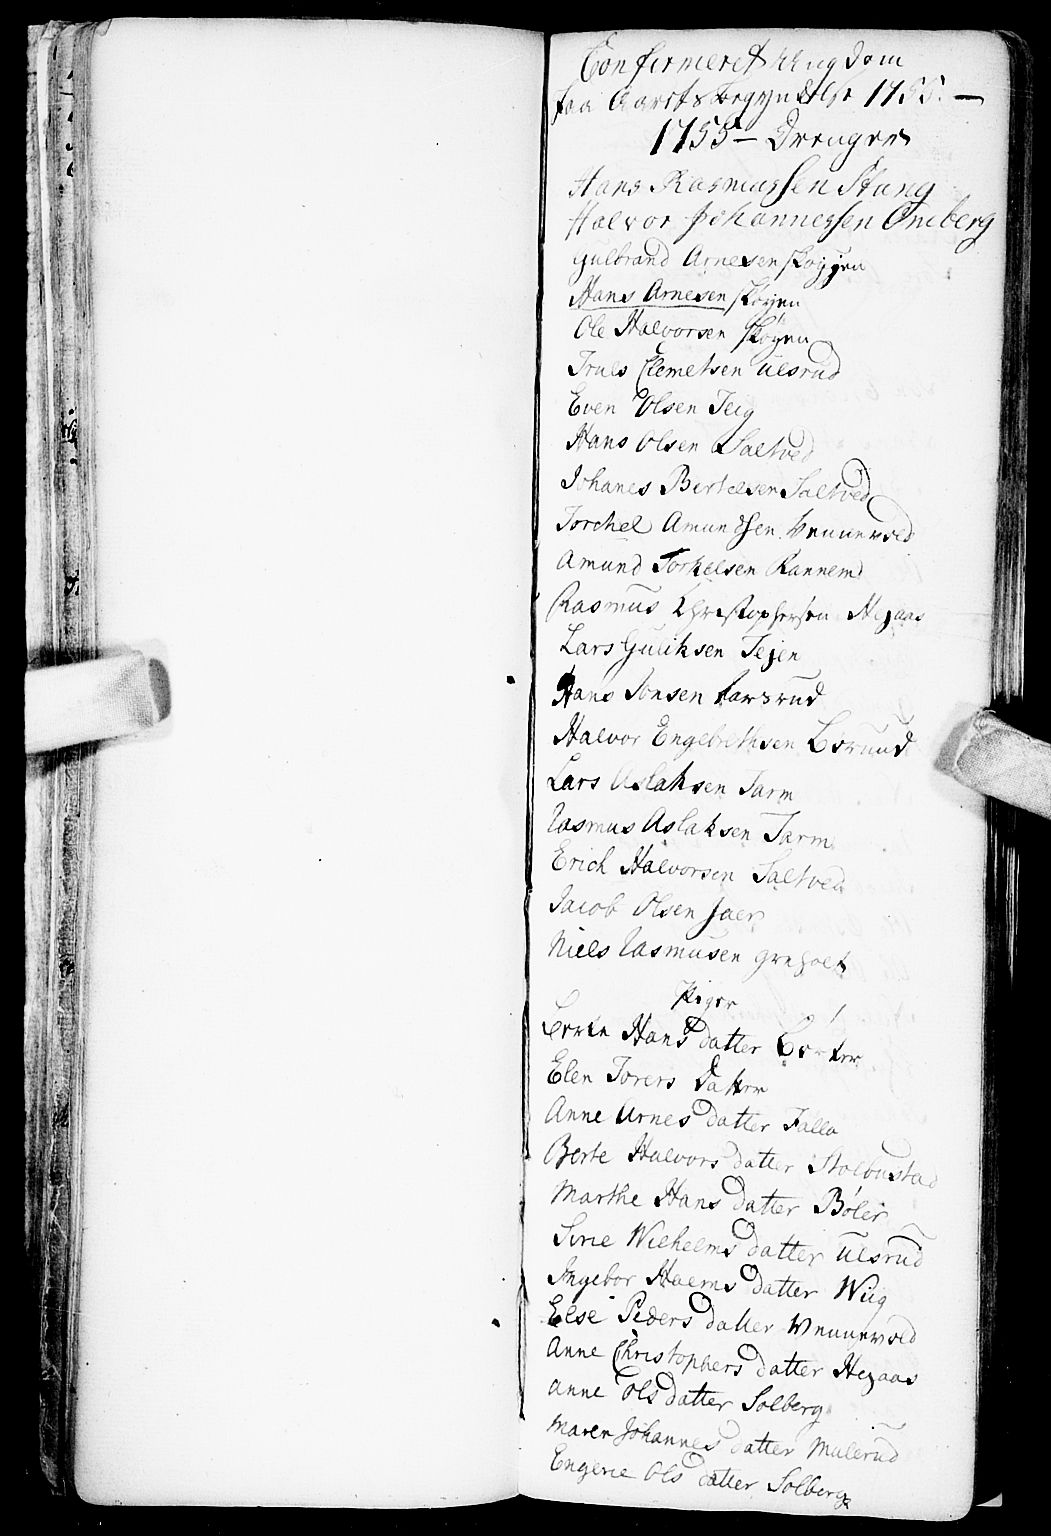 Confirmeret Ungdom
fra Aarets begyndelse 1755. —
1755 — Drenger
Hans Rasmussen Stang
Halvor Johannessen Omberg
Gulbrand Arnesen skøyen
Hans Arnesen skøyen
Ole Halvorsen skøyen
Truls Clemetsen Ulsrud
Even Olsen Teig
Hans Olsen Saltved
Johanes Bertelsen Saltved
Torchel Amundsen Vennevold
Amund Torkelsen Rannem
Rasmus Christophersen Hegaas
Lars Guliksen Tejen
Hans Jonsen
Halvor Engebrethsen
Lars Aslaksen Tarm
Rasmus Aslaksen Tarm
Erich Halvorsen Saltved
Jacob Olsen Jaer
Niels Rasmusen grnholt
Piger
Hans datter
Elen Torers Datter
Anne Arnes datter Falla
Berte Halvors datter Stolbustad
Marthe Hans datter Bøler
Sirie Wilhelms datter Ulsrud
Ingebor Halvors datter Wiig
Else Peders datter Wennevold
Anne Christophers datter Hegaas
Anne Ols datter Solberg
Maren Johannes datter Mulerud
Engerie Ols datter Solberg